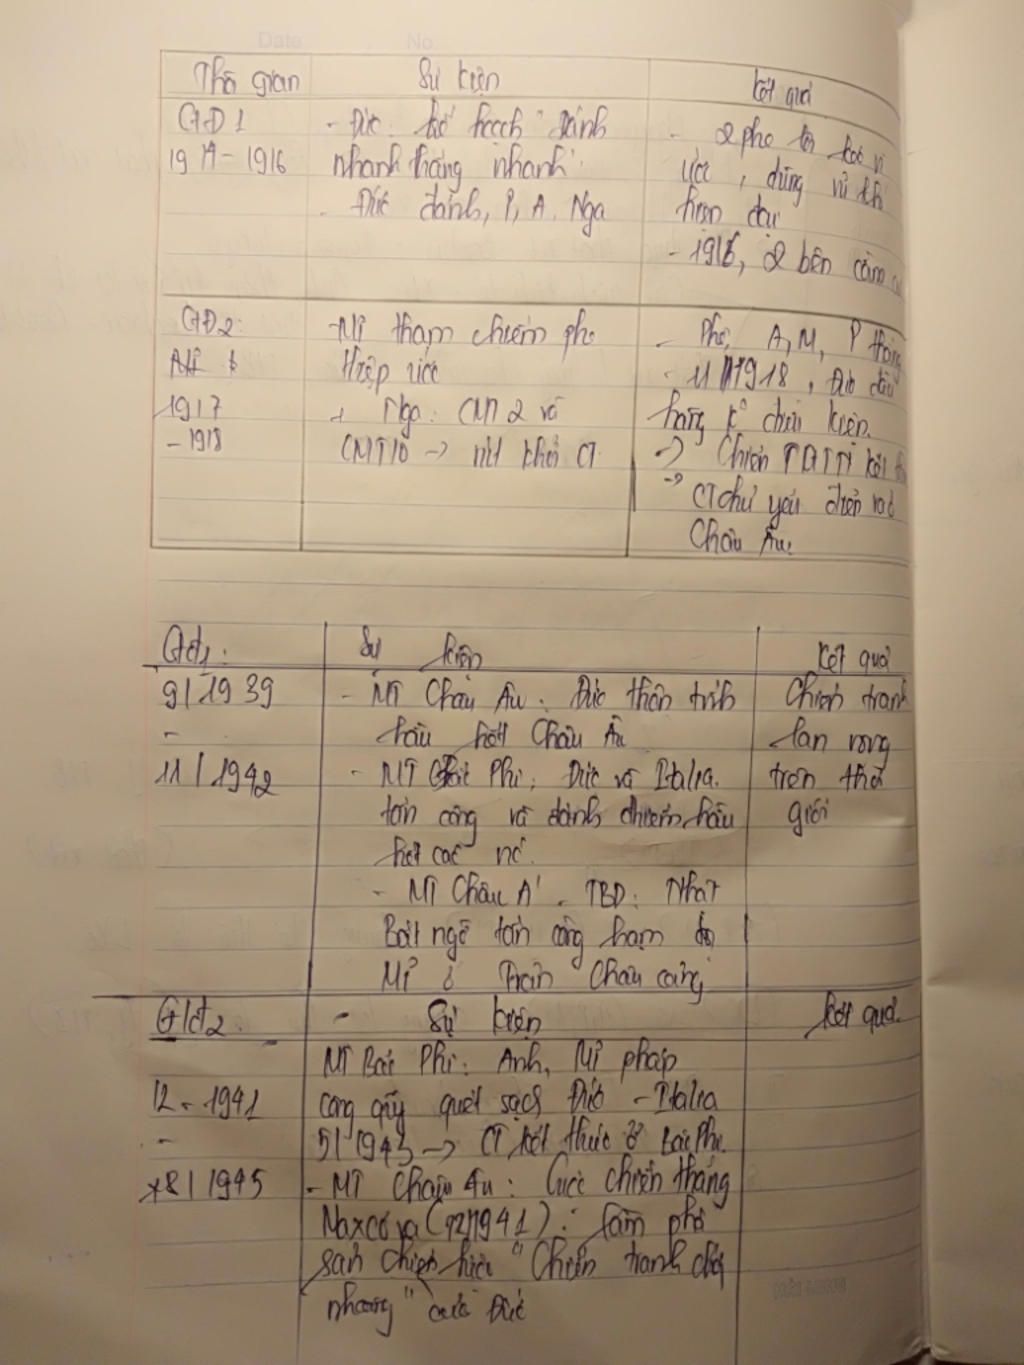 Date No.
Thời gian Sự kiện Kết quả
GĐ1 - Đức: kế hoạch "Đánh - 2 phe
1914 - 1916 nhanh thắng nhanh"
- Đức đánh, P, A, Nga hiện đại
- 1916, 2 bên cầm
GĐ2: - Mĩ tham chiếm phe - Phe, A, M, P thắng
Hiệp ước - 11/1918, Đức đầu
1917 + Nga: CM 2 và hàng k° điều kiện.
- 1918 CMT10 -> rút khỏi CT -> Chiến TGTN kết
-> CT chủ yếu diễn ra ở
Châu Âu.
Gđ1: Sự kiện Kết quả
9/1939 - MT Châu Âu: Đức thôn tính Chiến tranh
- hầu hết Châu Âu lan rộng
11/1942 - MT Bắc Phi: Đức và Italia. trên thế
tấn công và đánh chiếm hầu giới
hết các nc.
- MT Châu Á - TBD: Nhật
Bất ngờ tấn công hạm đội
Mĩ ở Trân Châu cảng
Gđ2: - Sự kiện Kết quả.
MT Bắc Phi: Anh, Mĩ pháp
12-1941 công quét sạch Đức - Italia
- 5/1943 -> CT kết thúc ở Bắc Phi.
8/1945 - MT Châu Âu: Cuộc chiến thắng
Maxcơva (12/1941): làm phá
sản chiến "Chiến tranh chớp
nhoáng" của Đức